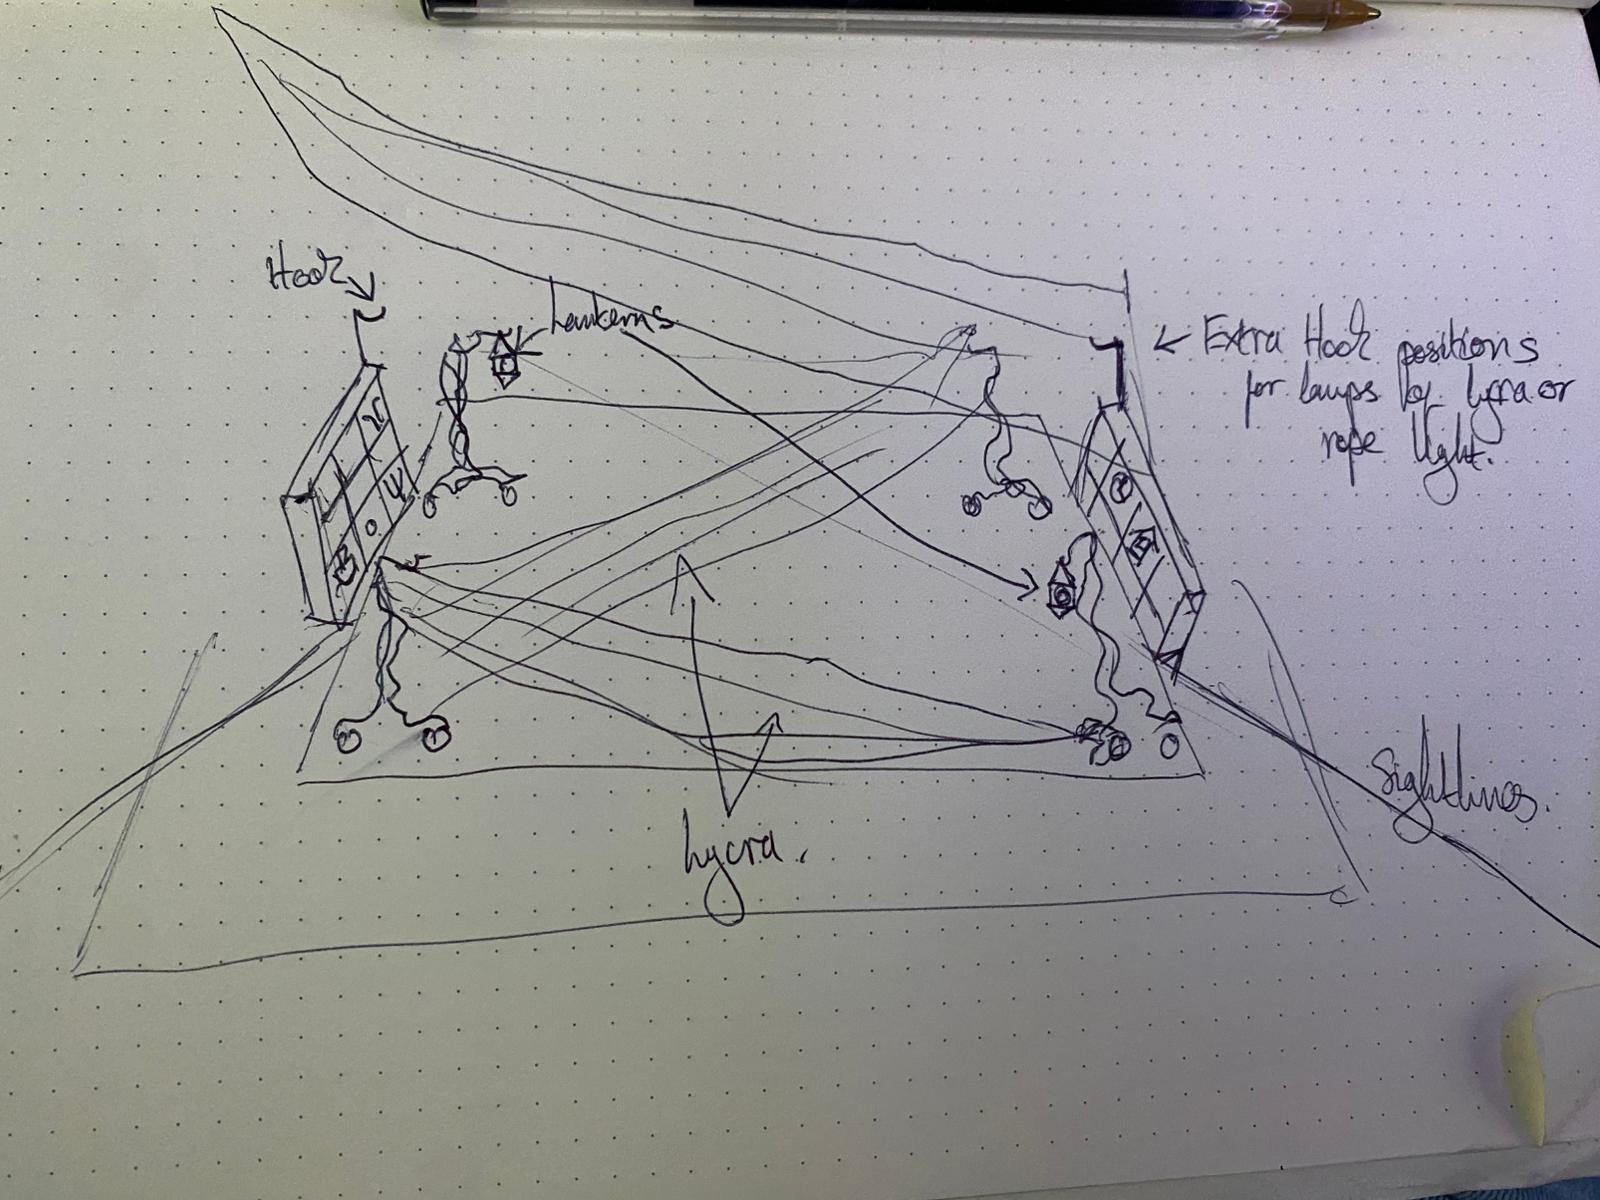 Hook
Lanterns
Extra Hook positions
for lamps lycra or
rope light.
Sightlines.
Lycra.